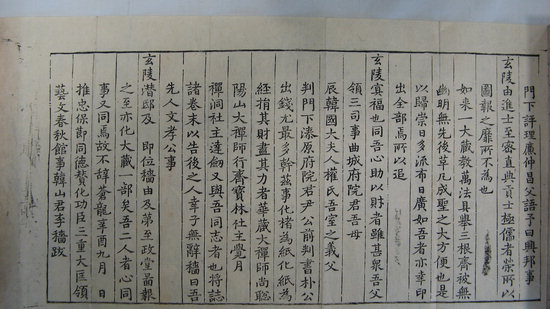 門下評理廉仲昌父語予曰興邦事
玄陵由進士至密直典貢士極儒者榮所以
圖報之靡所不為也
如来一大藏教萬法具舉三根齊被無
幽明無先後革凡成聖之大方便也是
以歸崇日多流布日廣如吾者亦幸印
出全部焉所以追
玄陵冥福也同吾心助以財者雖甚衆吾父
領三司事曲城府院君吾母
辰韓國大夫人權氏吾室之義父
判門下漆原府院君尹公前判書朴公
出錢尤最多幹茲事化楮為紙化紙為
経捐其財盡其力者華藏大禪師尚聡
陽山大禪師行齋寳林社主覺月
禪洞社主達劒又與吾同志者也將誌
諸卷末以告後之人幸子無辭穡曰吾
先人文孝公事
玄陵替邸及 即位穡由及第至政堂啚報
之至亦化大藏一部矣吾二人者心同
事又同焉故不辞蒼龍辛酉九月 日
推忠保莭同德賛化功臣三重大匡領
藝文春秋館事韓山君李穡跋